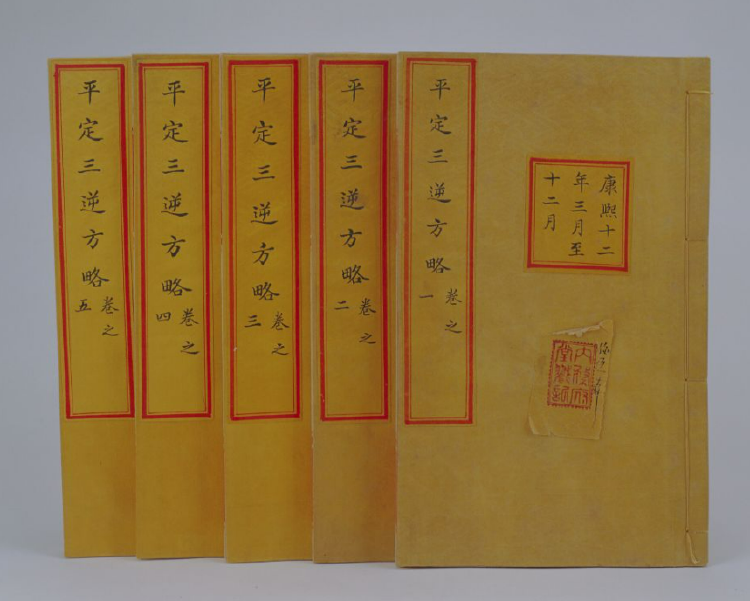 平定三逆方略
卷之
一
康熙十二
年三月至
十二月
平定三逆方略
卷之
二
平定三逆方略
卷之
三
平定三逆方略
卷之
四
平定三逆方略
卷之
五